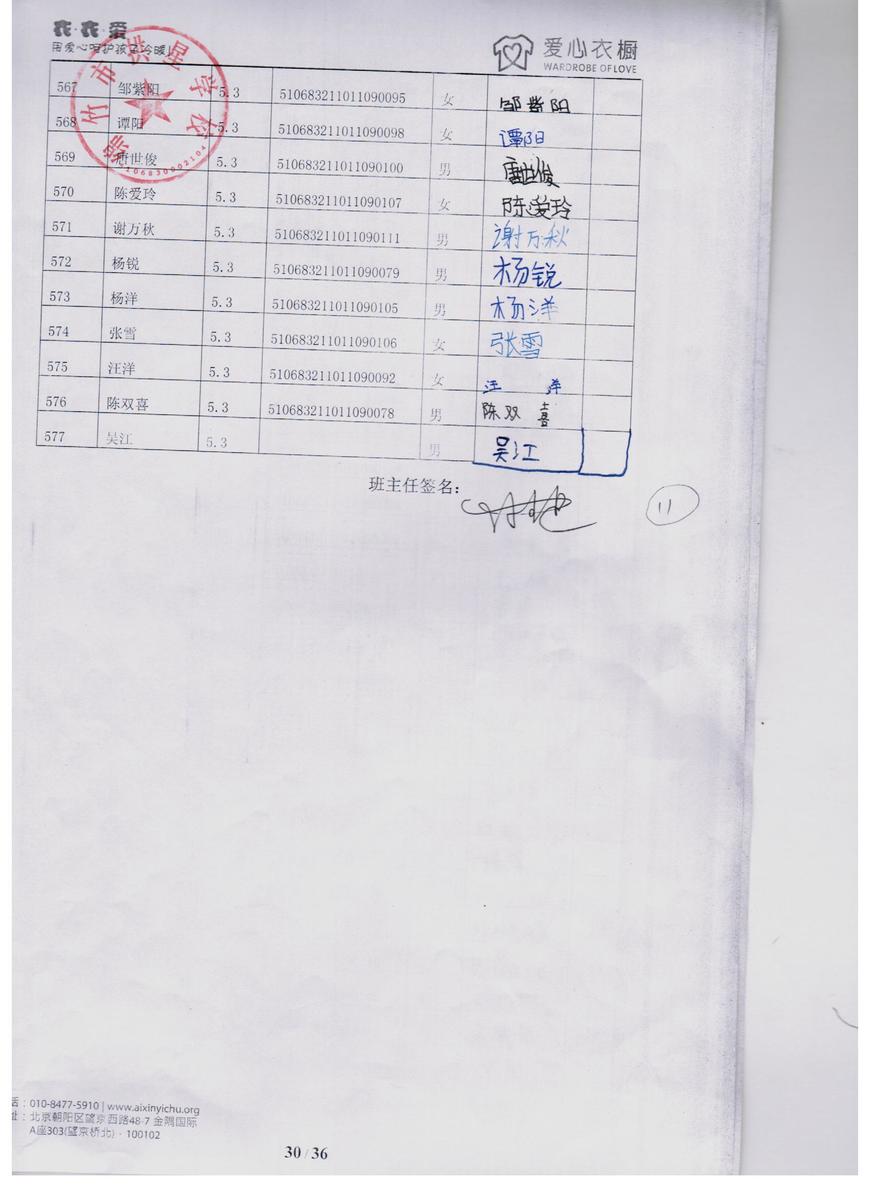 衣·衣·爱
用爱心呵护孩子冷暖！
爱心衣橱
WARDROBE OF LOVE
竹市洪星学校
5106830002104
567 邹紫阳 5.3 510683211011090095 女 邹紫阳
568 谭阳 5.3 510683211011090098 女 谭阳
569 唐世俊 5.3 510683211011090100 男 唐世俊
570 陈爱玲 5.3 510683211011090107 女 陈爱玲
571 谢万秋 5.3 510683211011090111 男 谢万秋
572 杨锐 5.3 510683211011090079 男 杨锐
573 杨洋 5.3 510683211011090105 男 杨洋
574 张雪 5.3 510683211011090106 女 张雪
575 汪洋 5.3 510683211011090092 女 汪洋
576 陈双喜 5.3 510683211011090078 男 陈双喜
577 吴江 5.3 男 吴江
班主任签名:
11
话：010-8477-5910 | www.aixinyichu.org
址：北京朝阳区望京西路48-7 金隅国际
A座303(望京桥北)·100102
30 / 36